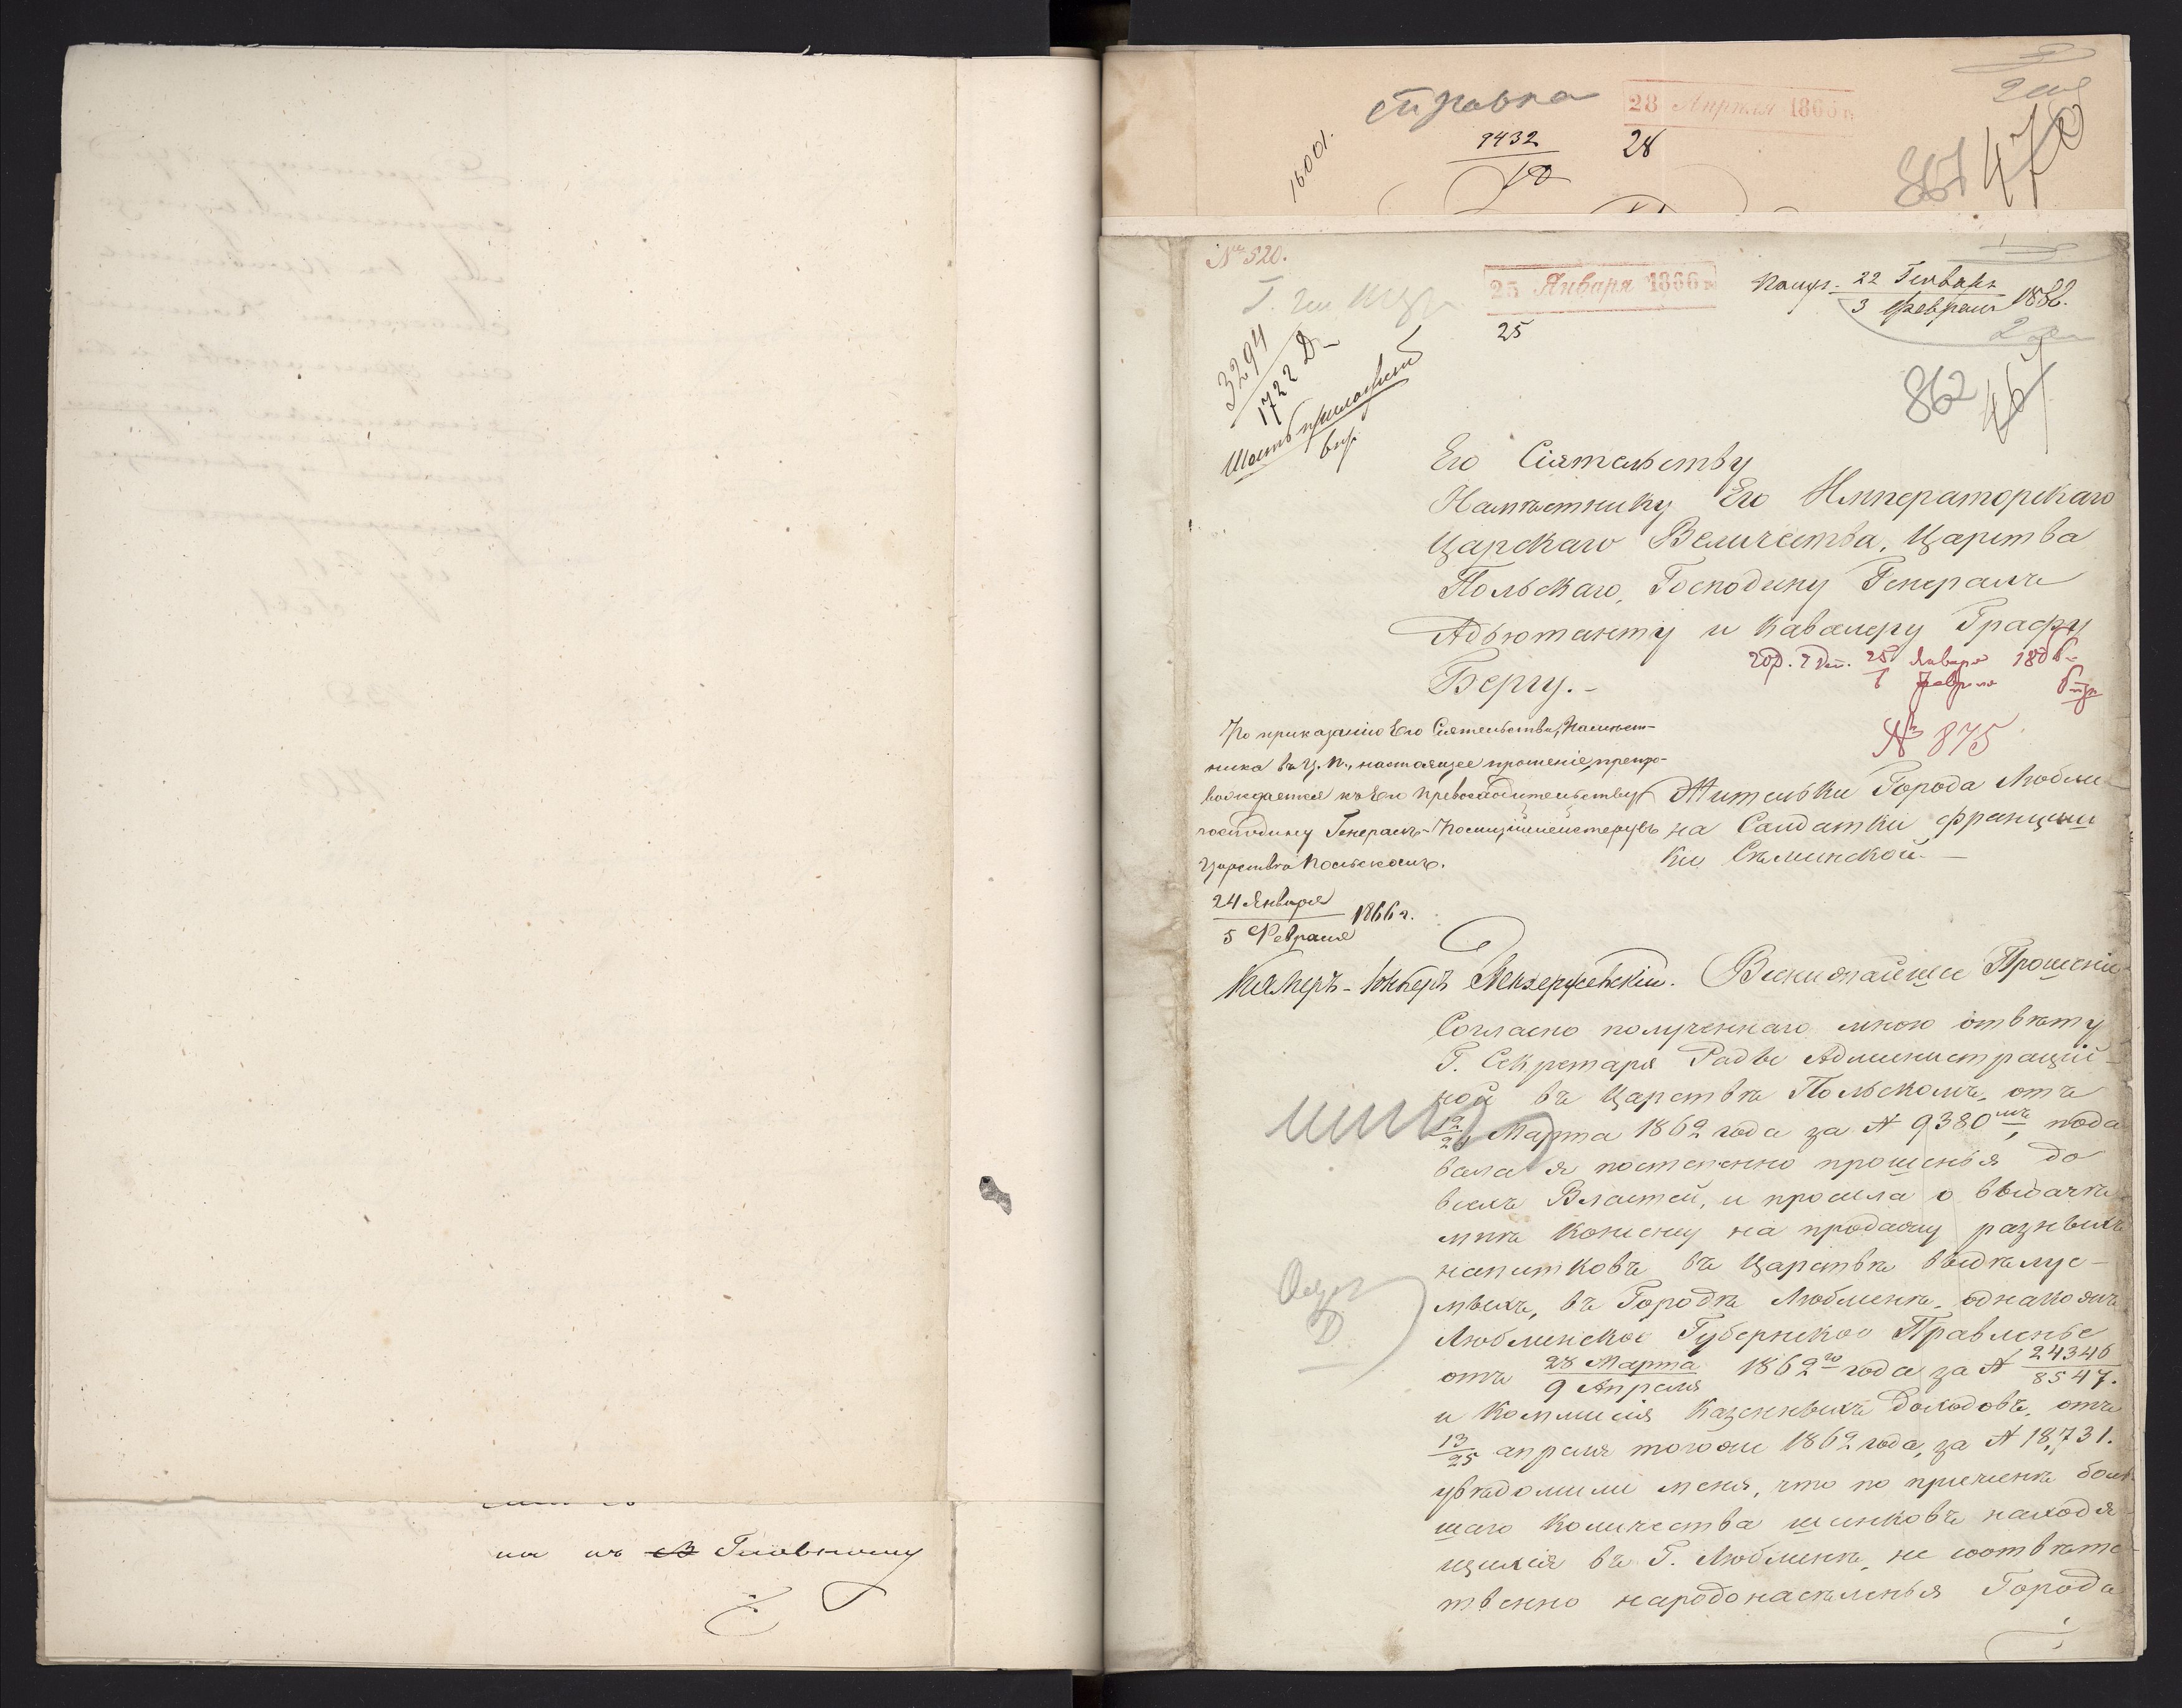 на къ Главному
справка
28 Апрѣля 1866 г.
9432
28
16001.
861 470
№ 520.
25 Января 1866 г.
25
Получ. 22 Генваря
3 Февраля 1866.
3294
1722 Д
Шесть приложений
862 467
Его Сіятельству
Намѣстнику Его Императорскаго
Царскаго Величества, Царства
Польскаго, Господину Генералъ
Адъютанту и Кавалеру Графу
Бергу.-
25 Января 1866
6 Февраля
№ 875
По приказанію Его Сіятельства, Намѣст-
ника въ Ц. П., настоящее прошеніе, препро-
вождается къ Его Превосходительству
господину Генералъ-Полиціймейстеру въ
Царствѣ Польскомъ.
24 Января
5 Февраля 1866 г.
Камеръ-Юнкеръ
Жительки Города Любли
на Салдатки Францыш
ки Сѣлинской.-
Вснижайшее Прошеніе
Согласно полученнаго мною отвѣту
Г. Секретаря Рады Администрацій-
ной въ Царствѣ Польскомъ, отъ
12/24 Марта 1862 года за № 9380мъ, пода
вала я постепенно прошенья до
всехъ Властей, и просила о выдачѣ
мнѣ Консенсу на продажу разныхъ
напитковъ въ Царствѣ выдѣлуе-
мыхъ, въ Городѣ Люблинѣ, однакожъ
Люблинское Губернское Правленье
отъ 28 Марта/9 Апреля 1862го года за № 24346/8547.
и Коммисія Казенныхъ Доходовъ, отъ
13/25 апреля тогоже 1862 года, за № 18,731.
увѣдомили меня, что по причинѣ боль
шаго Количества шинковъ находя-
щихся въ Г. Люблинѣ, не соотвѣтс-
твенно народонасѣленья Города